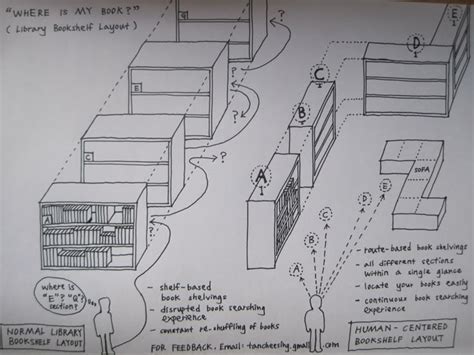 "WHERE IS MY BOOK?"
( Library Bookshelf Layout )
?
?
?
?
E
C
A
B
C
D
E
SOFA
A
B
C
D
E
where is
"E"? "Q"?
section?
- shelf-based
book shelvings
- disrupted book searching
experience
- constant re.shuffling of books
- route-based book shelvings
- all different sections
within a single glance
- locate your books easily
- continuous book searching
experience
NORMAL LIBRARY
BOOKSHELF LAYOUT
FOR FEEDBACK. Email: tancheeshg.gmail.com
HUMAN-CENTERED
BOOKSHELF LAYOUT